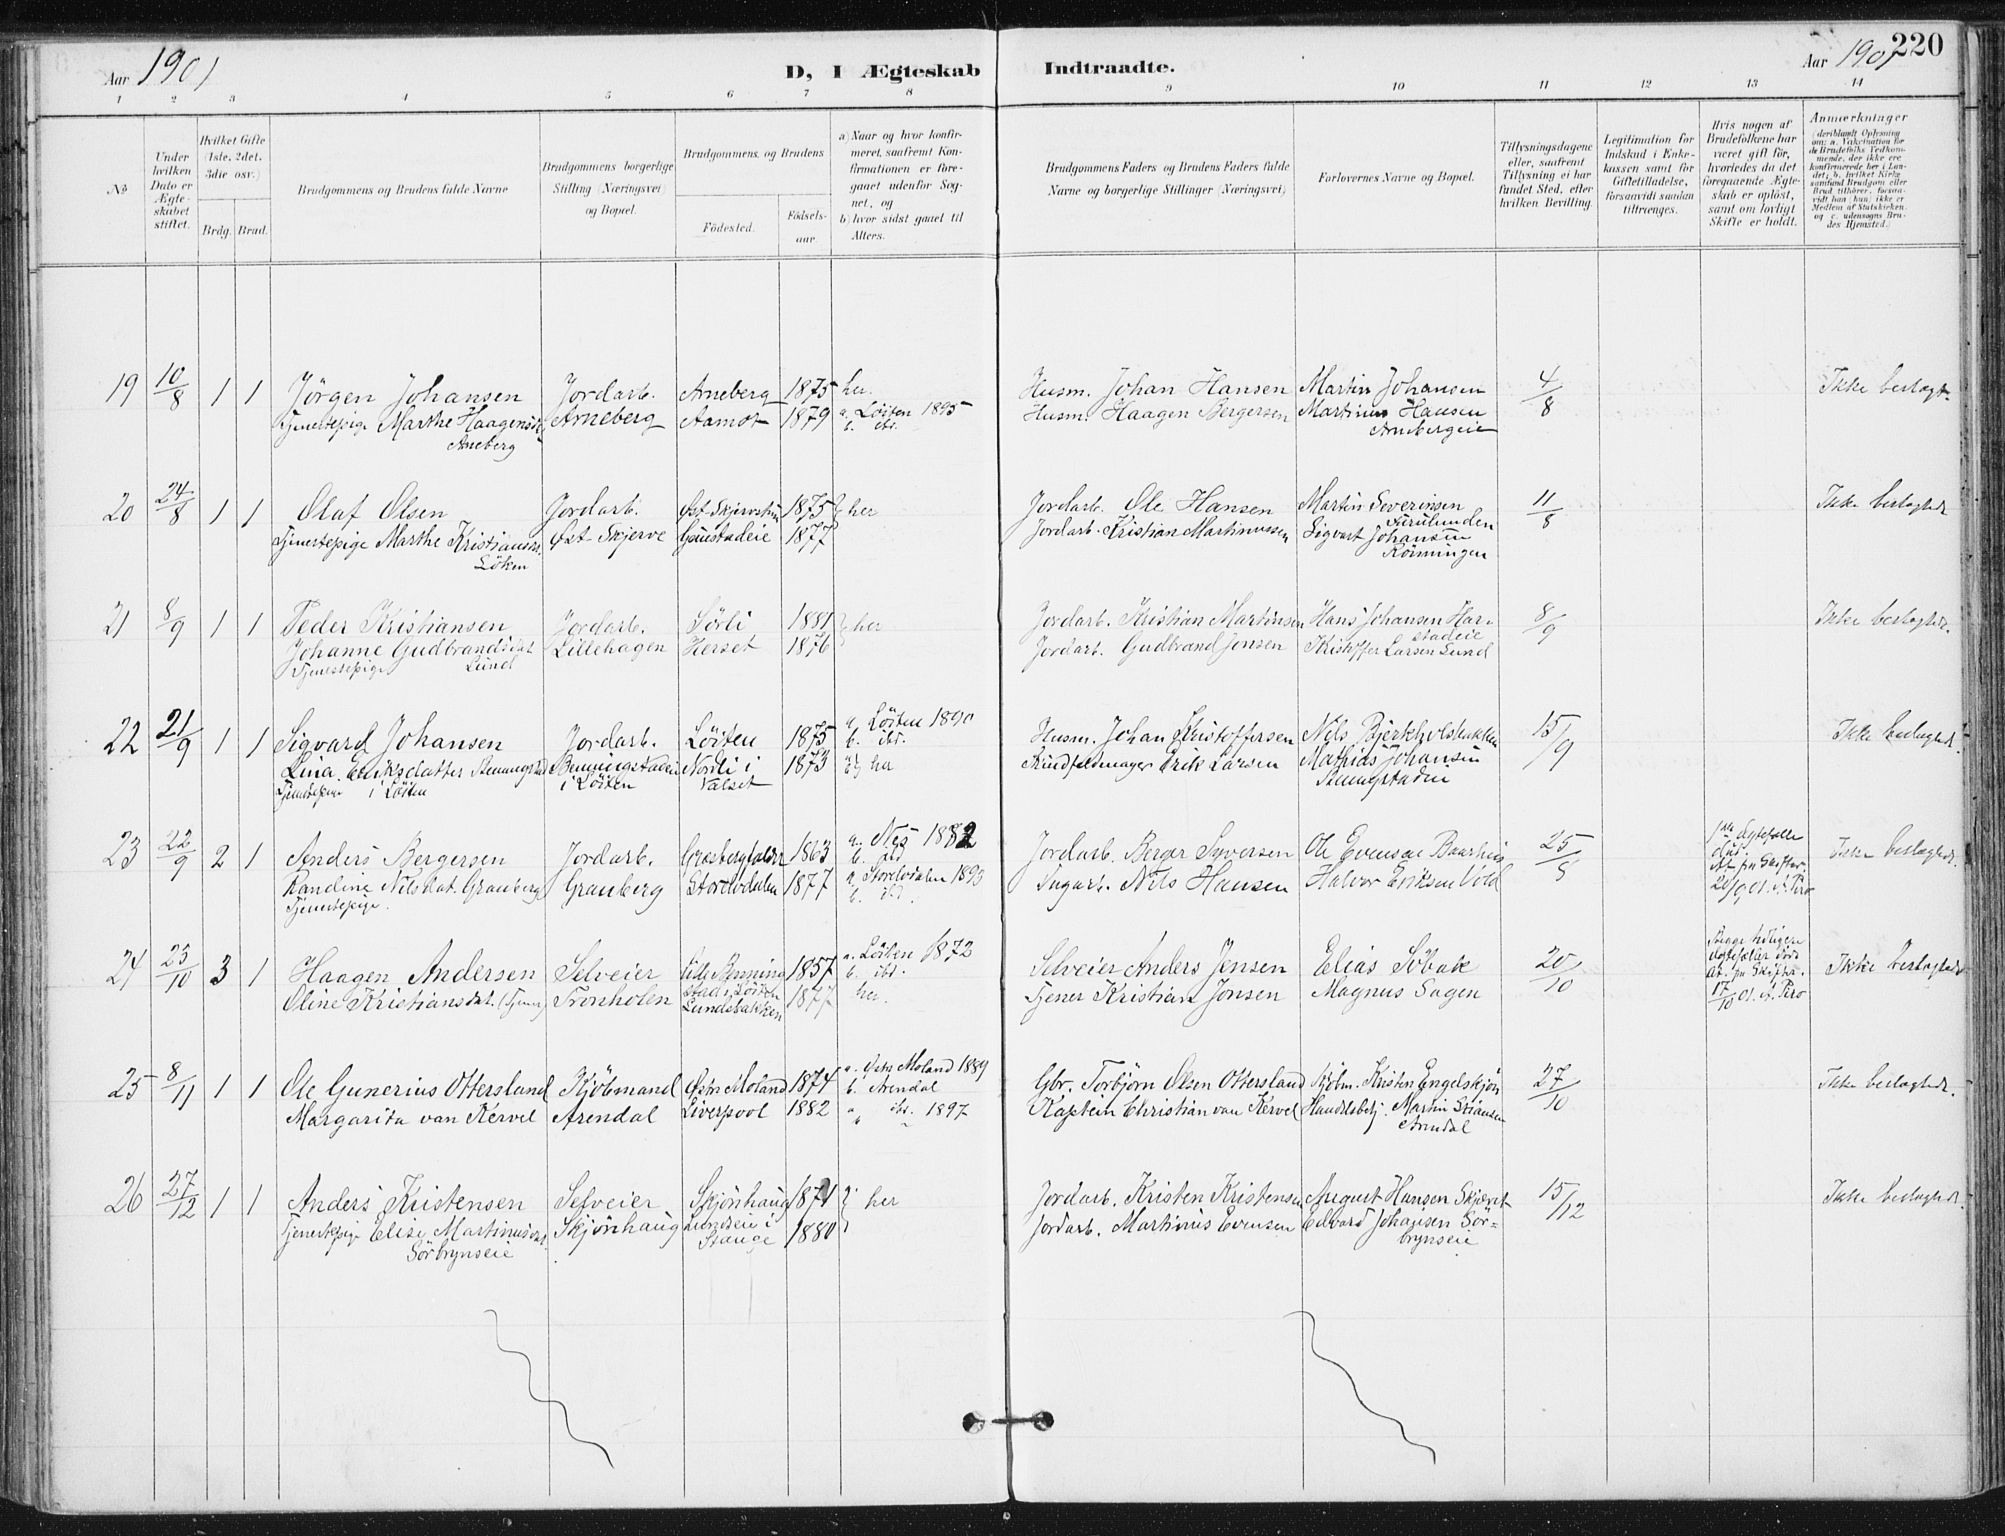 Aar 1901
D, I Ægteskab
Indtraadte.
Aar 1901
220
1 2 3 4 5 6 7 8 9 10 11 12 13 14
№
Under hvilken Dato er Ægteskabet stiftet.
Hvilket Gifte (1ste, 2det, 3die osv.)
Brdg. Brud.
Brudgommens og Brudens fulde Navne
Brudgommens borgerlige Stilling (Næringsvei) og Bopæl.
Brudgommens og Brudens
Födested.
Födselsaar
a) Naar og hvor konfirmeret, saafremt Konfirmationen er foregaaet udenfor Sognet, og
b) hvor sidst gaaet til Alters.
Brudgommens Faders og Brudens Faders fulde Navne og borgerlige Stillinger (Næringsvei)
Forlovernes Navne og Bopæl.
Tillysningsdagene eller, saafremt Tillysning ei har fundet Sted, efter hvilken Bevilling.
Legitimation for Indskud i Enkekassen samt for Giftetilladelse, forsaavidt saadan tiltrænges.
Hvis nogen af Brudefolkene har været gift för, hvorledes da det foregaaende Ægteskab er oplöst, samt om lovligt Skifte er holdt.
Anmærkninger
(deriblandt Oplysning om: a. Vakcination for de Brudefolks Vedkommende, der ikke ere konfirmerede her i Landet; b. hvilket Kirkesamfund Brudgom eller Brud tilhörer, forsaavidt han (hun) ikke er Medlem af Statskirken, og c. udensogns Brudes Hjemsted.)
19 10/8 1 1 Jörgen Johansen Jordarb. Arneberg 1875 her. Husm. Johan Hansen Martin Johansen 4/8 Ikke beslægt.
Tjenestepige Marthe Haagensd. Arneberg Aamot 1879 a. Löiten 1895 Husm. Haagen Bergersen Martinus Hansen
Arneberg b. ibs. Arnebergeie
20 24/8 1 1 Olaf Olsen Jordarb. Øst-Skjerv 1875 her Jordarb. Ole Hansen Martin Severinsen 11/8 Ikke beslægtede
Tjenestepige Marthe Kristiansd. Øst-Skjerve Gaustadeie 1877 Jordarb. Kristian Martinussen Furulunden
Löken Sigvart Johansen
Rönningen
21 8/9 1 1 Peder Kristiansen Jordarb. Sörli 1881 her Jordarb. Kristian Martinsen Hans Johansen Har- 8/9 Ikke beslægtede.
Johanne Gudbrandsdat. Lillehagen Herset 1876 Jordarb. Gudbrand Jensen stadeie
Tjenestepige Lund Kristoffer Larsen Lund
22 21/9 1 1 Sigvard Johansen Jordarb. Löiten 1875 a. Löiten 1890 Husm. Johan Kristoffersen Nils Bjerkholsbakken 15/9 Ikke beslægtede.
b. ibs.
Lina Eriksdatter Benningstad Benningstadeie Nordli i 1873 her Erik Larsen Mathias Johansen
Tjenestepige i Löiten i Löiten Valset Benningstadeie
23 22/9 2 1 Anders Bergersen Jordarb. 1863 a. Nes 1882 Jordarb. Berger Syversen Ole Evensen 25/8 1ste Ægtefælle död. Ikke beslægtede.
b. ibd
Randine Nilsdat. Granberg Granberg Storelvdalen 1877 a. Storelvdalen 1893 Sagarb. Nils Hansen Halvor Eriksen Vold At. fra Skifter.
Tjenestepige b. ibd. 20/9 01. A. Piro
24 23/10 3 1 Haagen Andersen Selveier Lille Benning 1857 a. Löiten 1872 Selveier Anders Jensen Elias Söbak 20/10 Begge tidligere Ikke beslægtede
b. ibs. Ægtefæller döde
Oline Kristiansdat. (Tjener) Tronholen stad i Löiten 1877 her. Tjener Kristian Jonsen Magnus Sagen At. fra Skifter.
Lundsbakken 17/10 01. A. Piro
25 8/11 1 1 Ole Gunerius Ottersland Kjöbmand Østre Moland 1874 a. Østre Moland 1889 Gbr. Torbjörn Olsen Ottersland Kjöbm. Kristen Engelskjön 27/10 Ikke beslægtede.
b. Arendal
Margarita van Kervel Arendal Liverpool 1882 a. ibs. 1897 Kaptein Christian van Kervel Handelsbetj. Martin
b. " Arendal
26 27/12 1 1 Anders Kristensen Selveier Skjönhaug 1871 her Jordarb. Kristen Kristensen August Hansen Skjæret 15/12 Ikke beslægtede.
Tjenestepige Elise Martinusdat. Skjönhaug Lundseie i 1880 Jordarb. Martinus Evensen Edvard Johansen Sör-
Sörbrynseie Stange brynseie